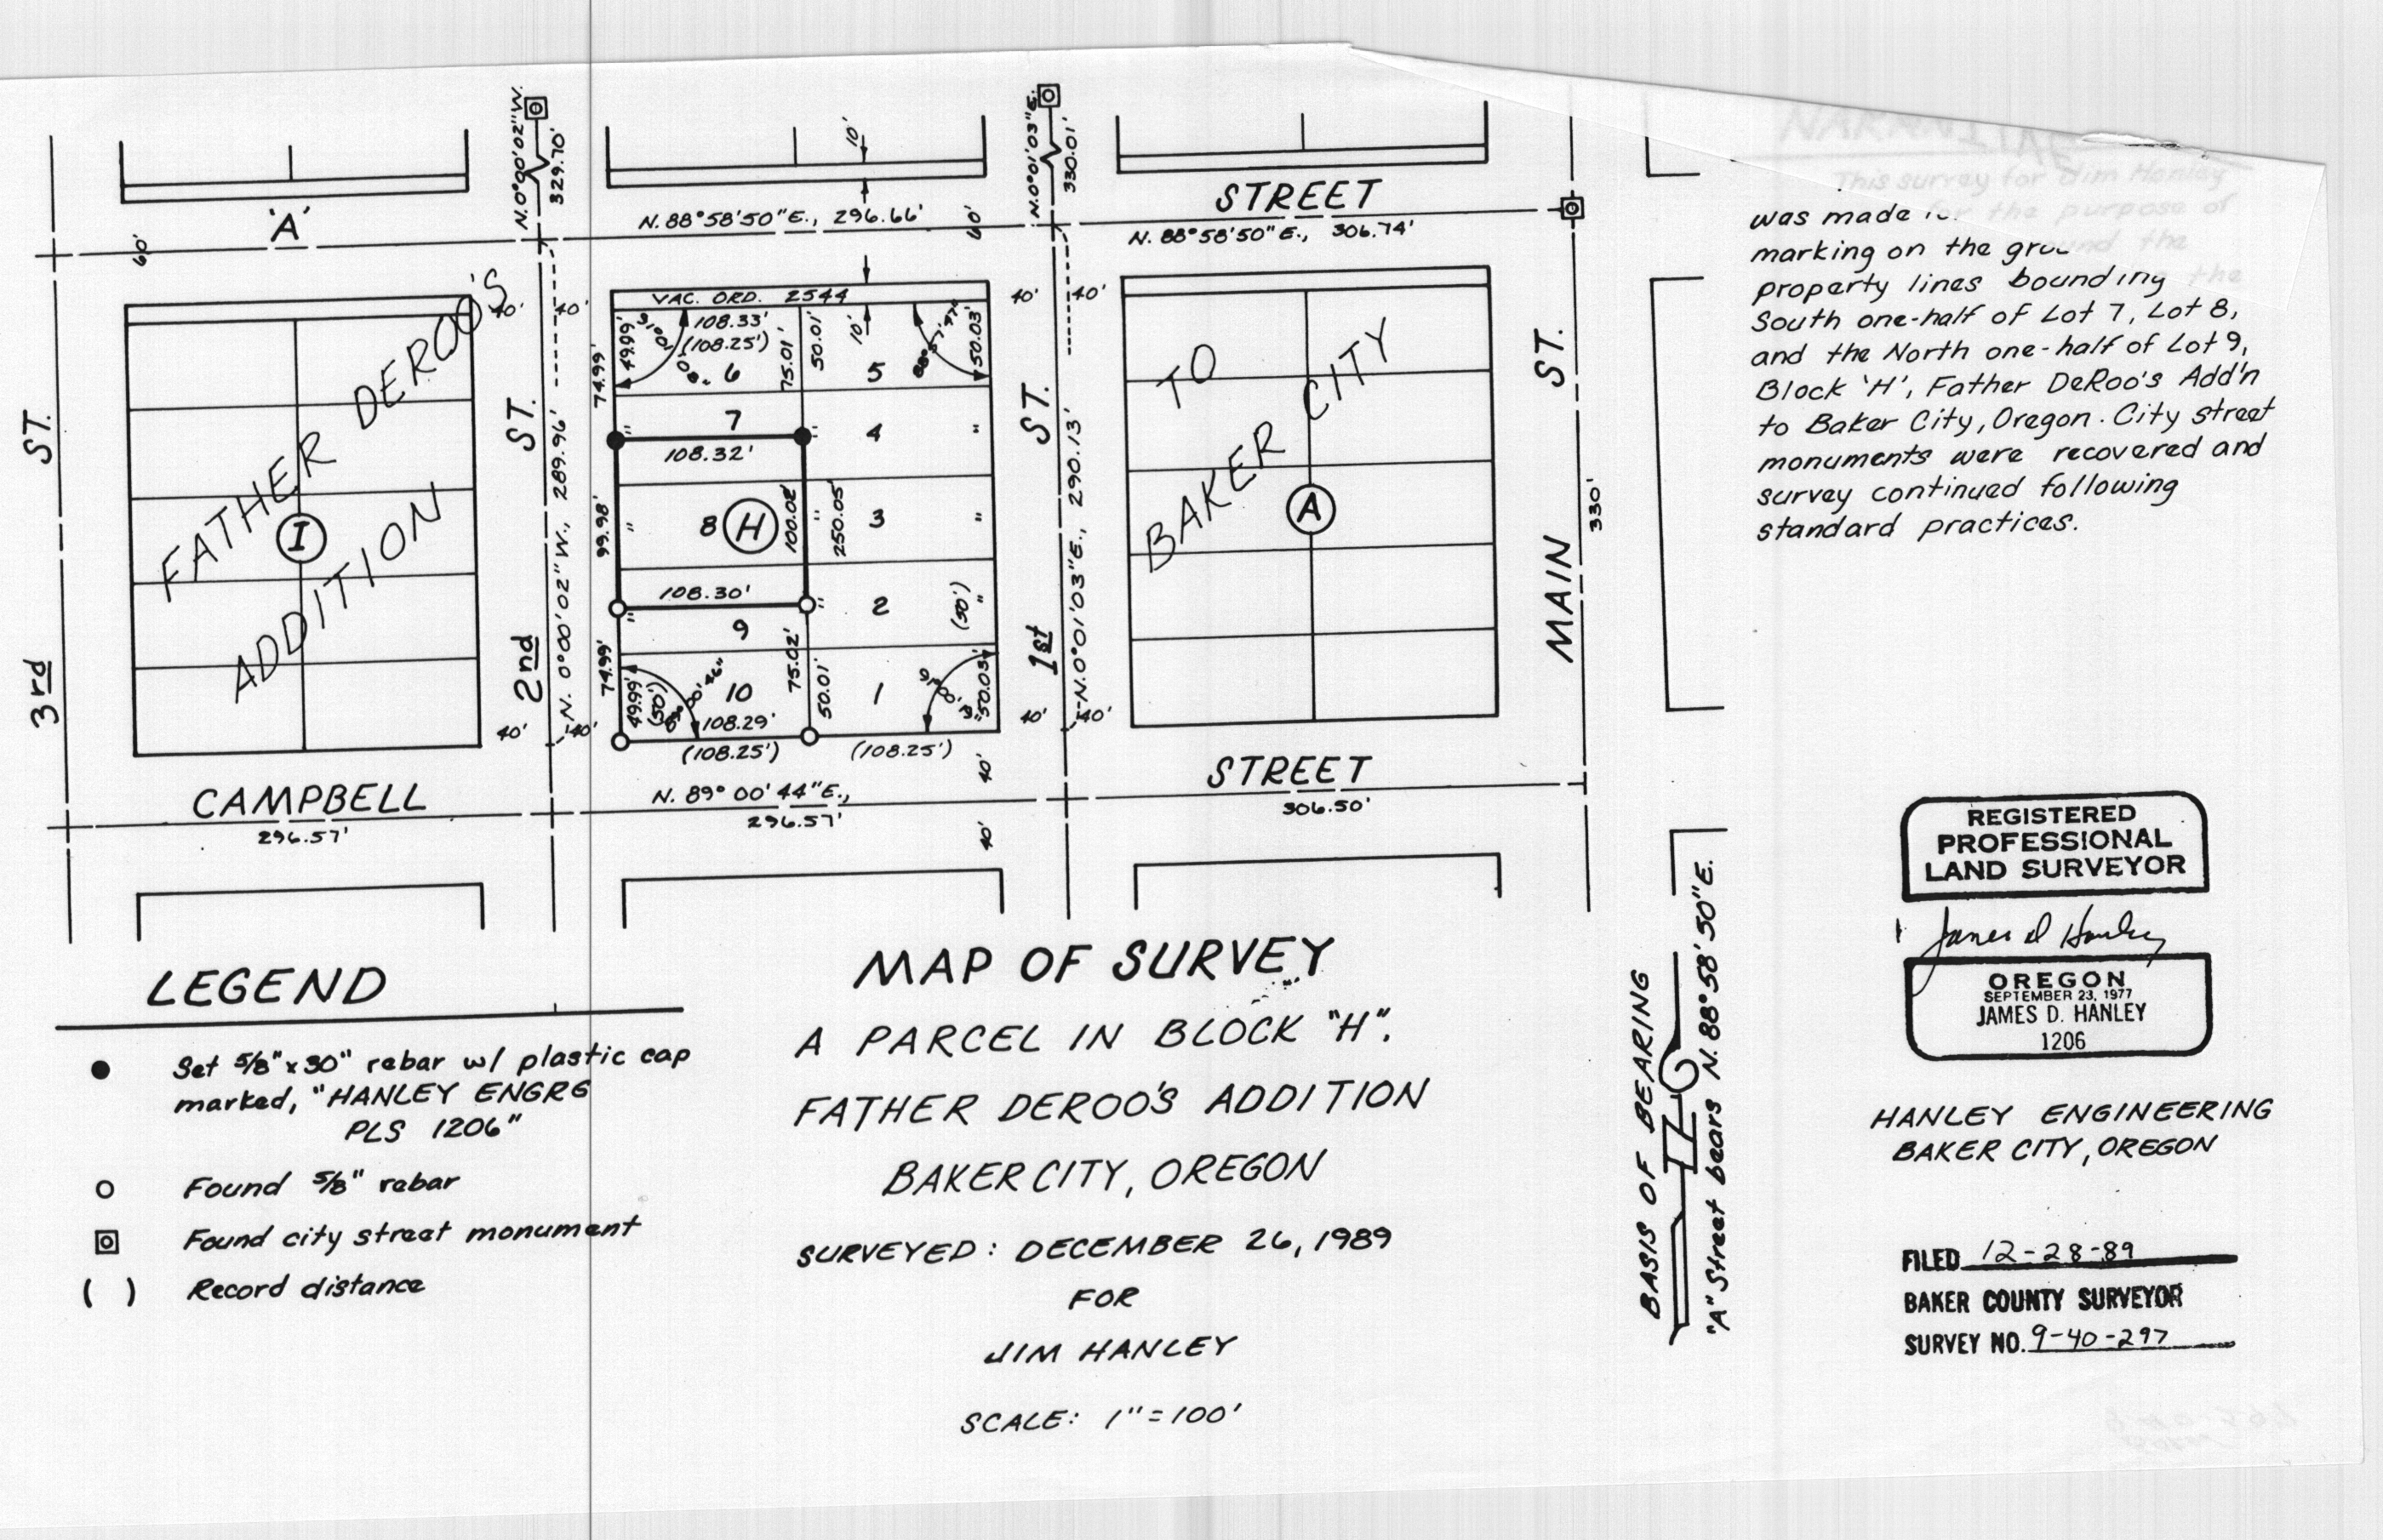 N.0°00'02"W.
329.70'
N.0°01'03"E.
330.01'
10'
'A'
STREET
60'
N. 88°58'50"E., 296.66'
60'
N. 88°58'50"E., 306.74'
NARRATIVE
This survey for Jim Hanley
was made for the purpose of
marking on the ground the
property lines bounding the
South one-half of Lot 7, Lot 8,
and the North one-half of Lot 9,
Block 'H', Father DeRoo's Add'n
to Baker City, Oregon. City street
monuments were recovered and
survey continued following
standard practices.
FATHER DEROO'S
ADDITION
TO
BAKER CITY
I
H
A
3rd ST.
2nd ST.
1st ST.
MAIN ST.
40' 40'
40' 40'
VAC. ORD. 2544
108.33'
(108.25')
49.99'
74.99'
75.01'
50.01'
10'
88°57'47"
50.03'
6
5
7
4
"
"
"
108.32'
8
3
"
"
"
99.98'
100.02'
250.05'
108.30'
9
2
(50')
"
"
"
74.99'
75.02'
10
1
49.99'
(50')
50.01'
50.03'
108.29'
(108.25')
(108.25')
N. 0°00'02"W., 289.96'
N.0°01'03"E., 290.13'
330'
40' 40'
40' 40'
CAMPBELL
STREET
296.57'
N. 89°00'44"E.,
296.57'
306.50'
40'
40'
LEGEND
Set 5/8"x30" rebar w/ plastic cap
marked, "HANLEY ENGRG
PLS 1206"
Found 5/8" rebar
Found city street monument
( ) Record distance
MAP OF SURVEY
A PARCEL IN BLOCK "H".
FATHER DEROO'S ADDITION
BAKER CITY, OREGON
SURVEYED: DECEMBER 26, 1989
FOR
JIM HANLEY
SCALE: 1"=100'
BASIS OF BEARING
"A" Street bears N.88°58'50"E.
REGISTERED
PROFESSIONAL
LAND SURVEYOR
James D Hanley
OREGON
SEPTEMBER 23, 1977
JAMES D. HANLEY
1206
HANLEY ENGINEERING
BAKER CITY, OREGON
FILED 12-28-89
BAKER COUNTY SURVEYOR
SURVEY NO. 9-40-297